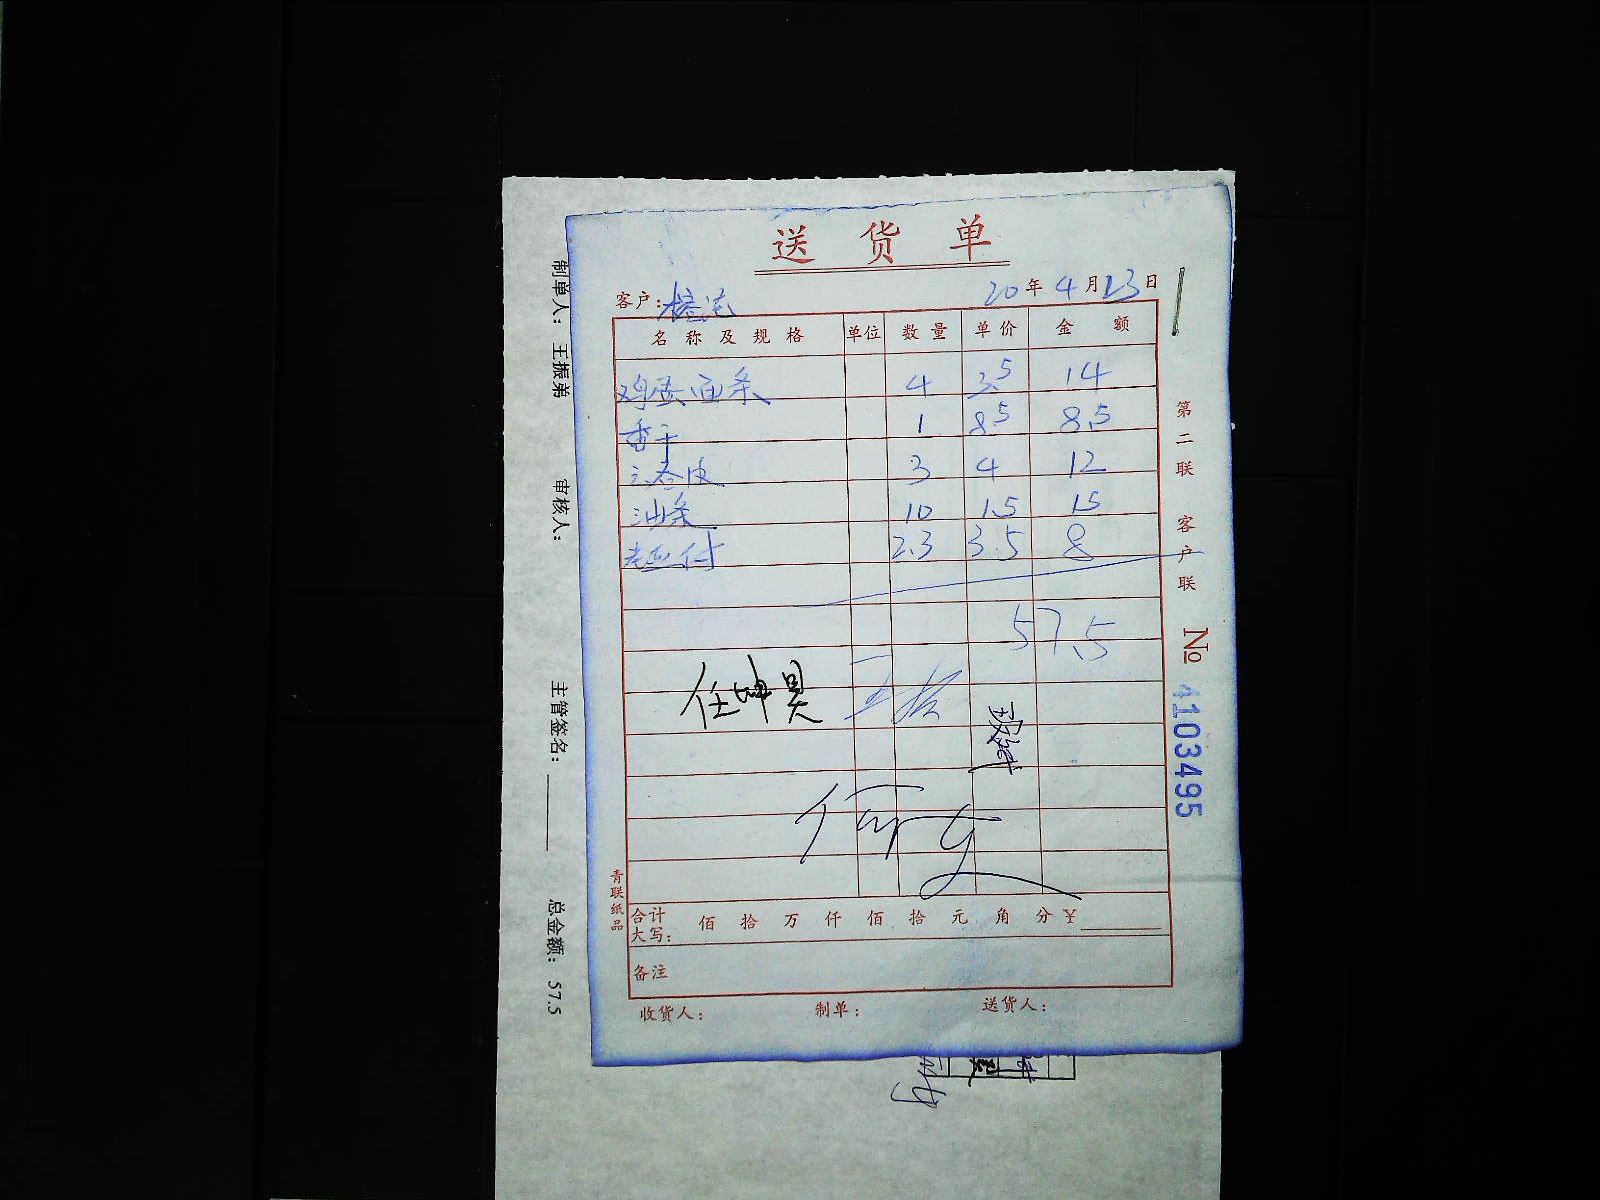 送货单
客户：
20年4月23日
名称及规格 单位 数量 单价 金额
鸡蛋面条 4 3.5 14
香干 1 8.5 8.5
3 4 12
油条 10 1.5 15
2.3 3.5 8
57.5
任坤昊 王振
何
合计大写： 佰 拾 万 仟 佰 拾 元 角 分 ￥
备注
收货人： 制单： 送货人：
第二联 客户联
№ 4103495
青联纸品
制单人： 王振弟 审核人： 主管签名： 总金额： 57.5